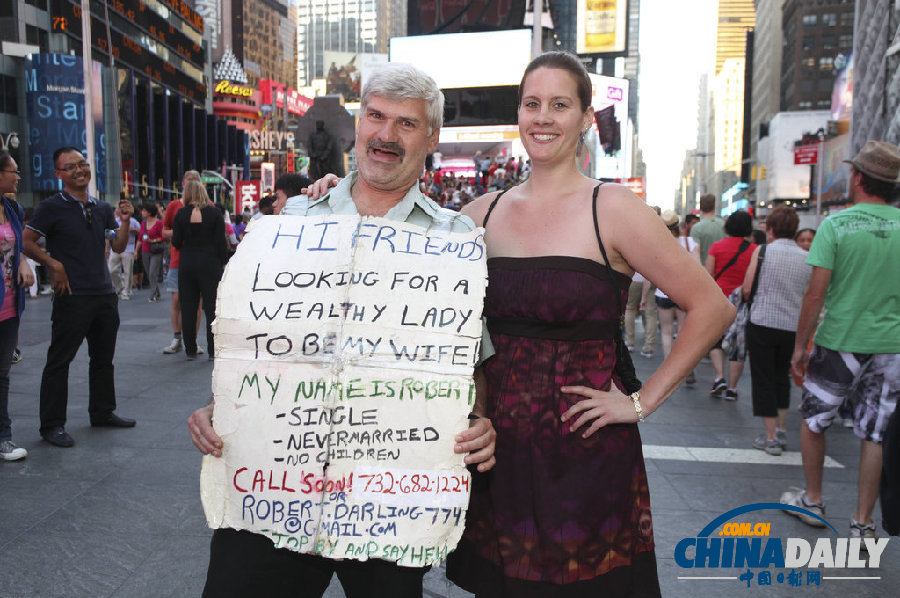 HI FRIENDS
LOOKING FOR A
WEALTHY LADY
TO BE MY WIFE
MY NAME IS ROBERT
-SINGLE
-NEVER MARRIED
-NO CHILDREN
CALL SOON! 732-682-1224
OR
ROBERT.DARLING774
@G-MAIL.COM
AND SAY
Reese's
HERSHEY'S
Morgan
Stanley
.COM.CN
CHINADAILY
中国日报网